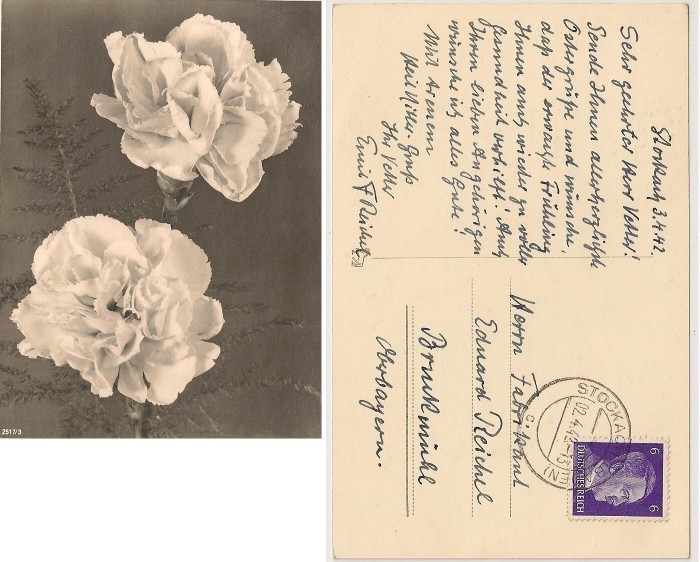 2517/3
Stockach 3.4.42.
Sehr geehrter Herr Vetter!
Sende Ihnen allerherzlichste
Ostergrüße und wünsche,
daß der erwachte Frühling
Ihnen auch wieder zu voller
Gesundheit verhilft! Auch
Ihren lieben Angehörigen
wünsche ich alles Gute!
Mit treuem
Heil Hitler-Gruß
Ihr Vetter
Emil F Reichel
Herrn Fabrikant
Eduard Reichel
Bruckmühl
Oberbayern.
STOCKACH
02.4.42-13
6 6
DEUTSCHES REICH